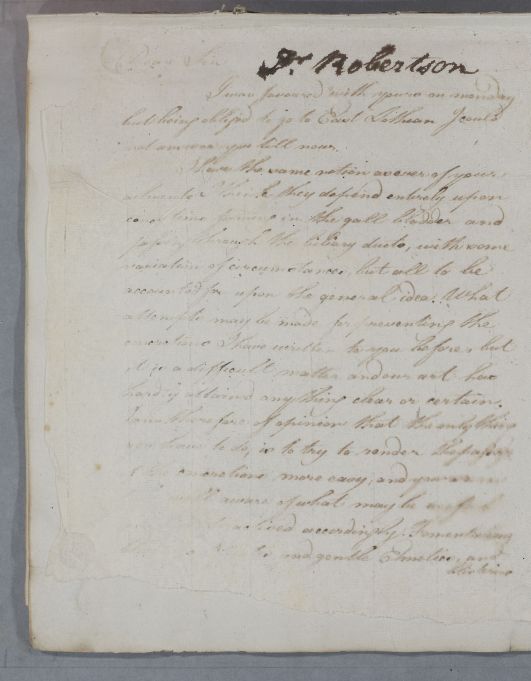 Dr Robertson
Dear Sir
I was favoured with yours on monday
but being obliged to go to East Lothian I could
not answer you till now.
I have the same notion as ever of your
ailments I think they depend entirely upon
concretions forming in the gall bladder and
passing through the biliary ducts, with some
variation of circumstances, but all to be
accounted for upon the general idea. What
attempts may be made for preventing the
concretions I have written to you before, but
it is a difficult matter and our art has
hardly attained any thing clear or certain.
I am therefore of opinion that the only thing
you have to do, is to try to render the passage
of the concretions more easy, and you are
well aware of what may be
practised accordingly. Fomentations
and gentle Emetics, and